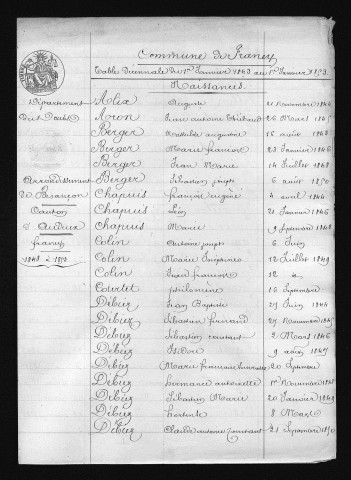 Commune de Franey
Table Décennale du 1er Janvier 1843 au 1er Janvier 1853.
Naissances
Département du Doubs
Arrondissement de Besançon
Canton d'Audeux
franey
1843 à 1853
Alix Auguste 2 novembre 1846
Aron 26 Mars 1845
Berger augustine 16 août 1843
Berger Marie françoise 23 Janvier 1846
Berger Jean Marie 14 Juillet 1848
Berger Sébastien joseph 6 août 1850
Chapuis françois eugène 4 avril 1844
Chapuis Léon 21 Janvier 1846
Chapuis Marie 9 Septembre 1848
Colin Antoine joseph 6 Juin
Colin Marie Joséphine 12 Juillet 1849
Colin Jean françois 12
Courtet philomène 16 Septembre
Débiez Jean Baptiste 29 Juin 1844
Débiez Sébastien fernand 25 Novembre 1845
Débiez Sébastien constant 2 Mars 1846
Débiez Isidore 9 août 1847
Débiez Marie françoise 20 Septembre
Débiez hermance antoinette 1er Novembre 1848
Débiez Sébastien Marie 20 Janvier 1849
Débiez hortense 8 Mars
Débiez Claude antoine constant 21 Septembre 1850